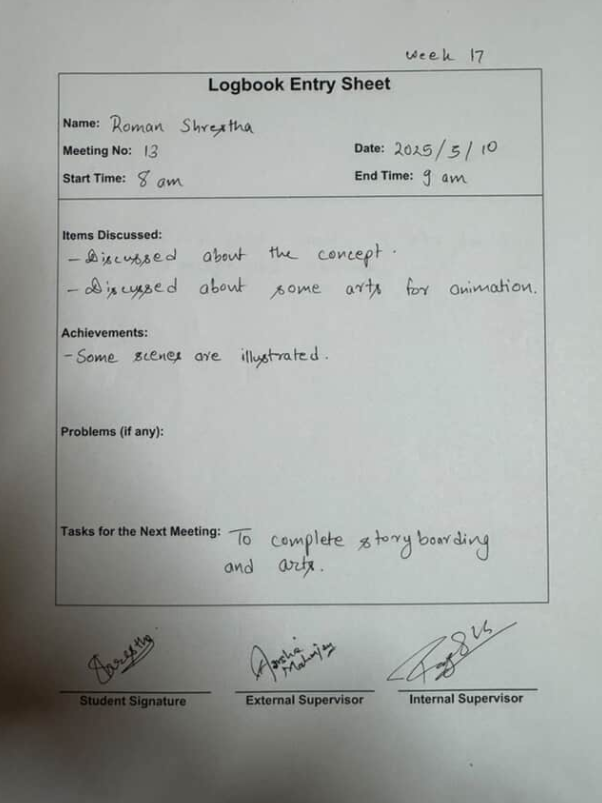 Week 17
Logbook Entry Sheet
Name: Roman Shrestha
Meeting No: 13 Date: 2025/5/10
Start Time: 8 am End Time: 9 am
Items Discussed:
- Discussed about the concept.
- Discussed about some arts for animation.
Achievements:
- Some scenes are illustrated.
Problems (if any):
Tasks for the Next Meeting: To complete storyboarding
and arts.
Shrestha
Student Signature External Supervisor Internal Supervisor